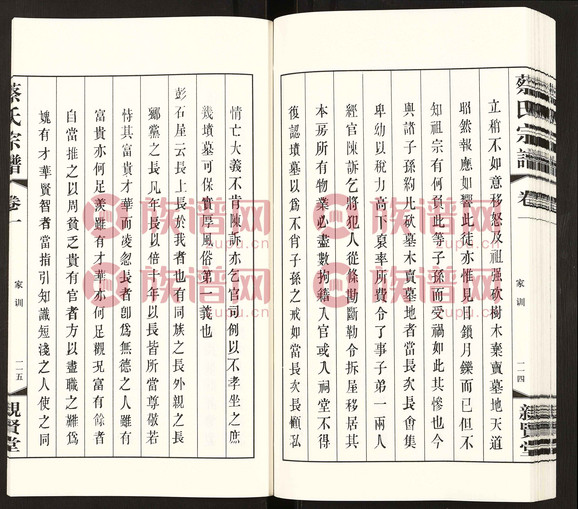 蔡氏宗譜
卷一
家训
一一四
親賢堂
立稍不如意移怒及祖强砍樹木棄賣墓地天道
昭然報應如響此徒亦惟見日鎖月鑠而已但不
知祖宗有何負此等子孫而受禍如此其慘也今
與諸子孫約凡砍墓木賣墓地者當長次長會集
卑幼以稅力高下裒率所費令了事子弟一兩人
經官陳訴乞將犯人從條勘斷勒令拆屋移居其
本房所有物業必盡數拘籍入官或入祠堂不得
復認墳墓以為不肖子孫之戒如當長次長顧私
情亡大義不肯陳訴亦乞官司例以不孝坐之庶
幾墳墓可保實厚風俗第一義也
彭石屋云長上長於我者也有同族之長外親之長
鄉黨之長凡年長以倍十年以長皆所當尊敬若
恃其富貴才華而凌忽長者卽為無德之人雖有
富貴亦何足羨雖有才華亦何足觀況富有餘者
自當推之以周貧乏貴有官者方以盡職之難為
媿有才華賢智者當指引知識短淺之人使之同
蔡氏宗譜
卷一
家训
一一五
親賢堂
族谱网
zupu.cn
族谱网
zupu.cn